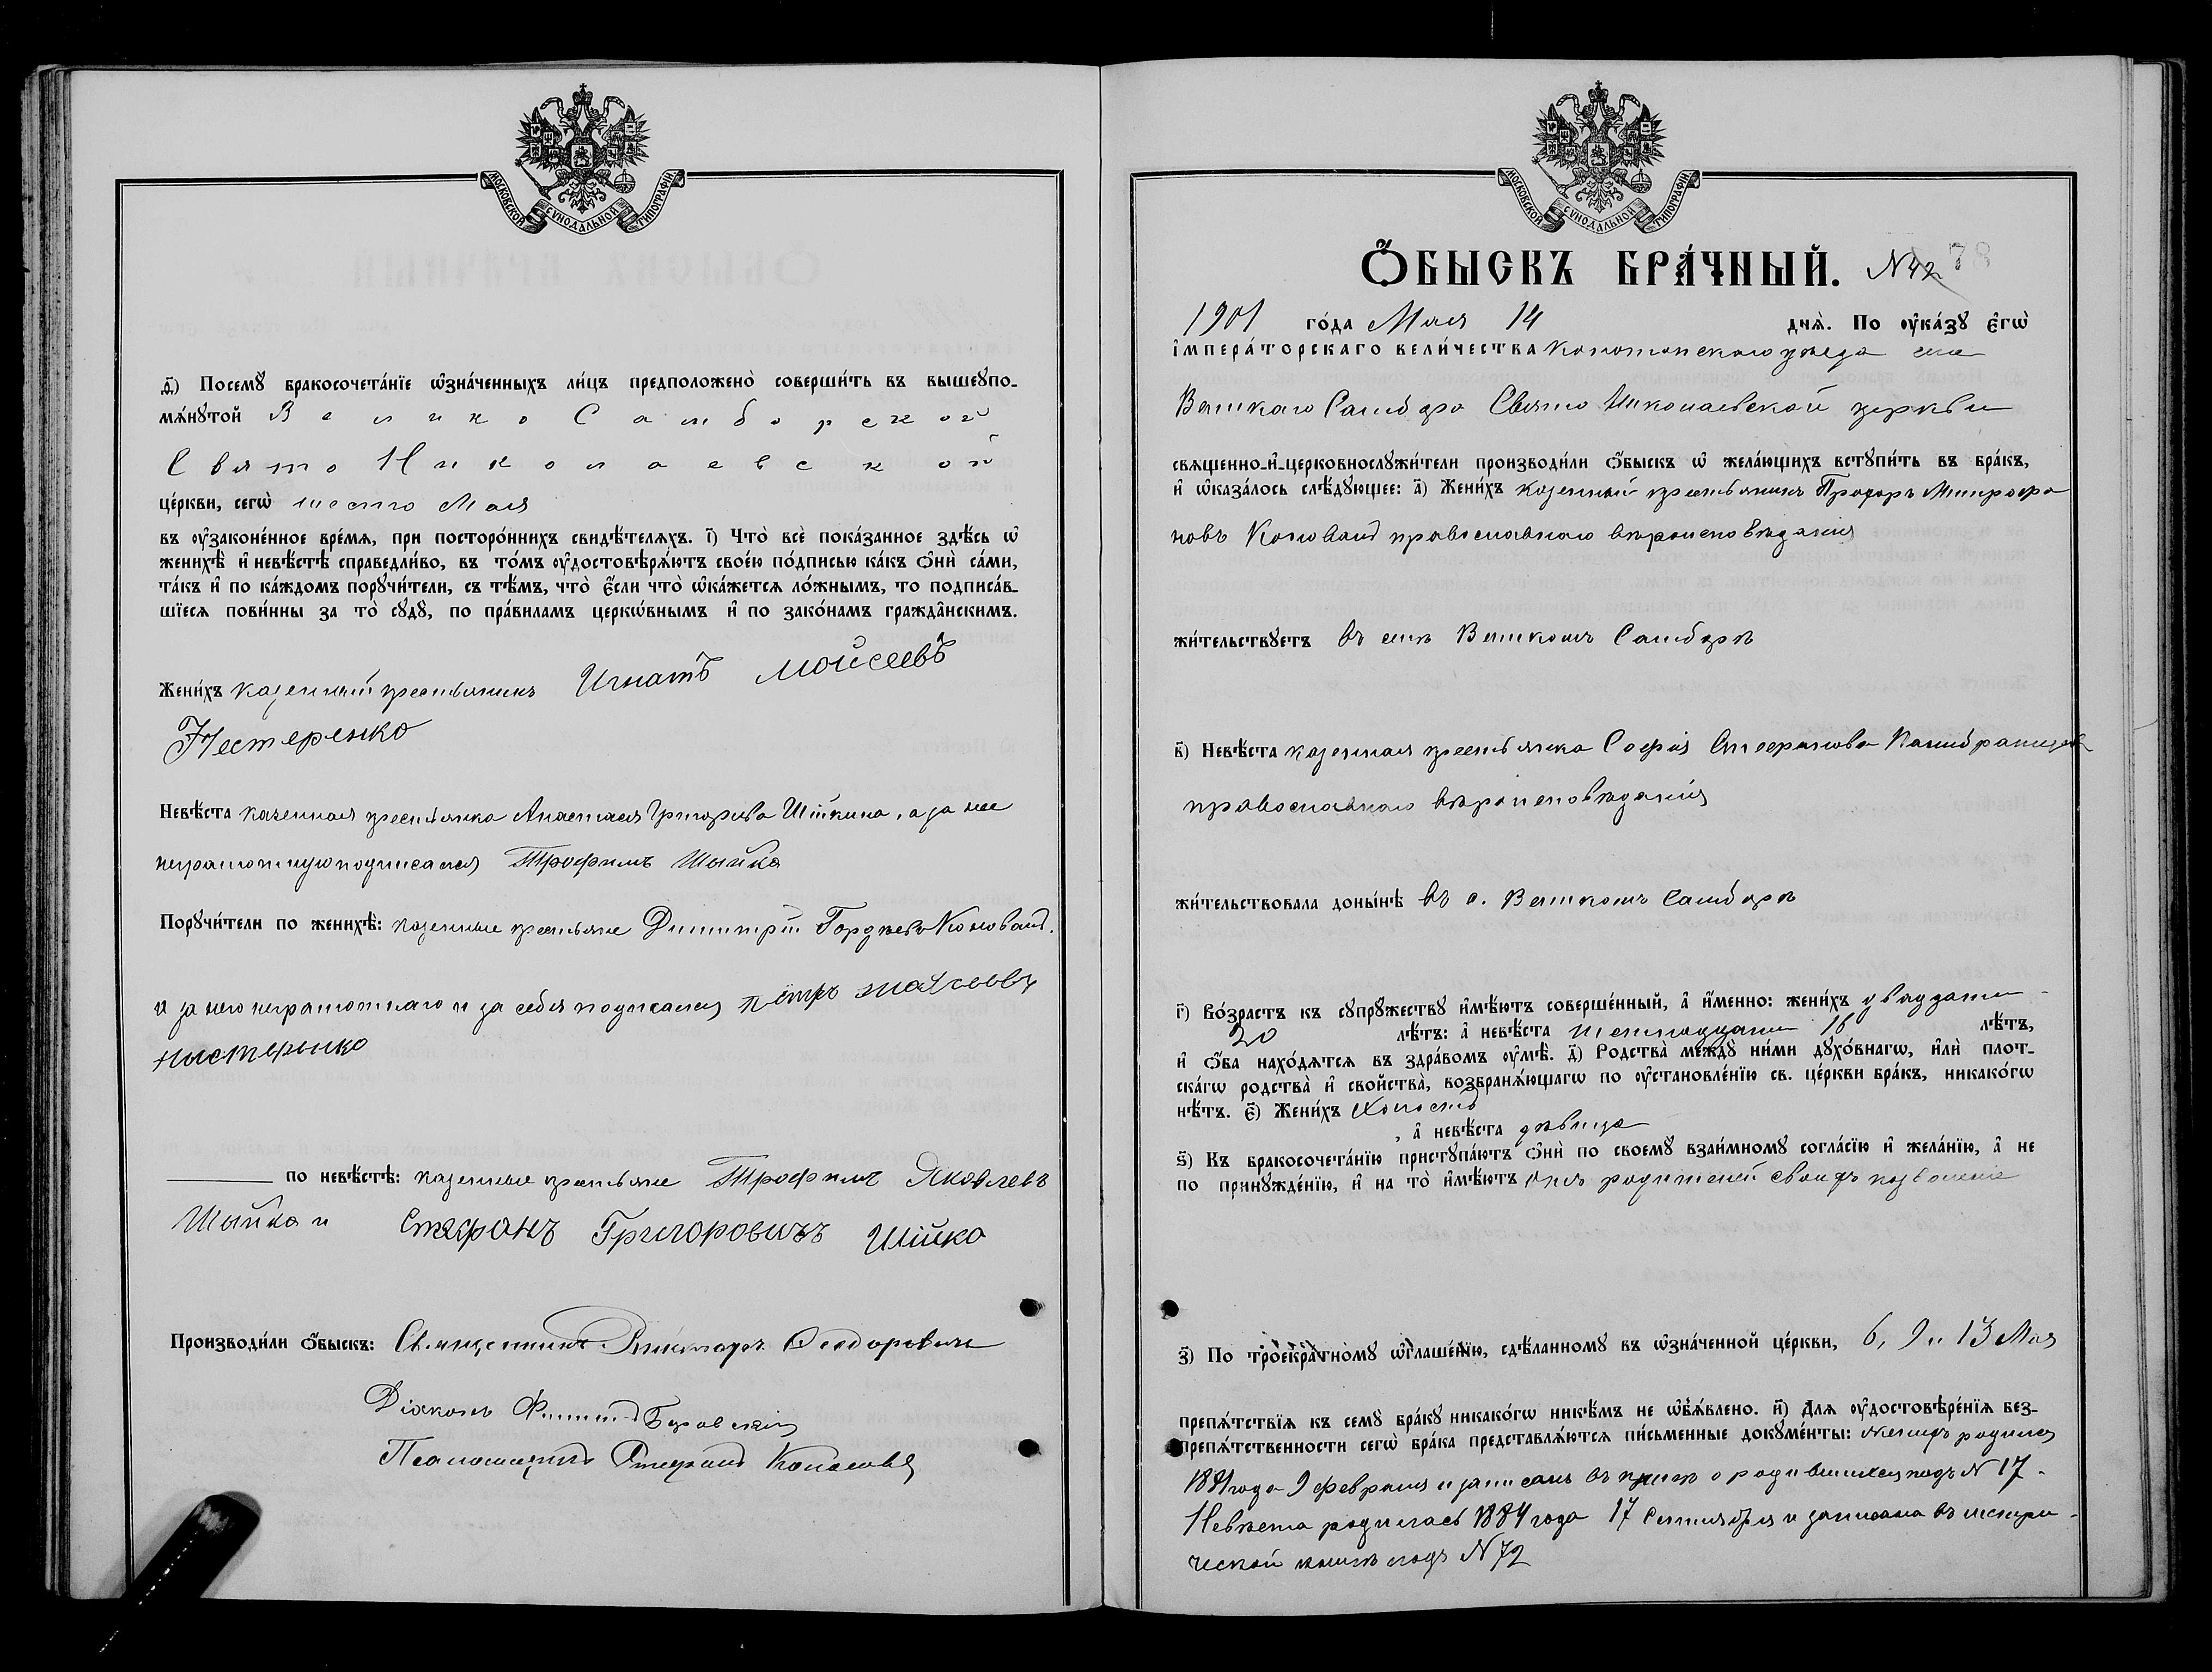 МОСКОВСКОЙ СѴНОДАЛЬНОЙ ТИПОГРАФІИ
д҃і) Посемꙋ̀ бракосочета́нїе ѡ҆зна́ченныхъ ли́цъ предположено̀ соверши́ть въ вышеꙋпо-
мѧ́нꙋтой Велико Самборской
Свято Николаевской
це́ркви, сегѡ̀ шесто Мая
въ ᲂу҆законе́нное вре́мѧ, при посторо́ннихъ свидѣ́телѧхъ. і҃) Что̀ всѐ пока́занное здѣ́сь ѡ҆
женихѣ̀ и҆ невѣ́стѣ справедли́во, въ то́мъ ᲂу҆достовѣрѧ́ютъ свое́ю по́дписью ка́къ ѻ҆нѝ са́ми,
та́къ и҆ по ка́ждомъ порꙋчи́тели, съ тѣ́мъ, что̀ є҆́сли что̀ ѡ҆ка́жетсѧ ло́жнымъ, то подписа́в-
шїесѧ пови́нны за то̀ сꙋдꙋ̀, по пра́виламъ церкѡ́внымъ и҆ по зако́намъ гражда́нскимъ.
Жени́хъ казенный крестьянинъ Игнатъ Моисеевъ
Нестеренко
Невѣ́ста казенная крестьянка Анастасія Григорьева Шійкина, а за нее
неграмотную подписался Трофимъ Шыйка
Порꙋчи́тели по женихѣ̀: казенные крестьяне Димитрій Гордѣевъ Коновалъ
и за него неграмотнаго и за себя подписался Пётръ
Ныстеренко
по невѣ́стѣ: казенные крестьяне Трофимъ Яковлевъ
Шыйка и Стефанъ Григоровичъ Шійко
Производи́ли ѻ҆́быскъ: Священникъ Викторъ Ѳеодоровичъ
Діаконъ Филиппъ
Псаломщикъ Стефанъ
МОСКОВСКОЙ СѴНОДАЛЬНОЙ ТИПОГРАФІИ
Ѻ҆́БЫСКЪ БРА́ЧНЫЙ. N 42 78
1901 го́да Мая 14 днѧ̀. По ᲂу҆ка́зꙋ є҆гѡ̀
і҆мпера́торскаго вели́чества Конотопскаго уѣзда села
Великаго Самбора Свято Николаевской церкви
свѧщенно-и҆-церковнослꙋжи́тели производи́ли ѻ҆́быскъ ѡ҆ жела́ющихъ встꙋпи́ть въ бра́къ,
и҆ ѡ҆каза́лось слѣ́дꙋющее: а҃) Жени́хъ казенный крестьянинъ Прохоръ Митрофа
новъ Коновалъ православнаго вѣроисповѣданія
жи́тельствꙋетъ въ селѣ Великомъ Самборѣ
в҃) Невѣ́ста казенная крестьянка Софія Стефанова
православнаго вѣроисповѣданія
жи́тельствовала доны́нѣ въ с. Великомъ Самборѣ
г҃) Во́зрастъ къ сꙋпрꙋ́жествꙋ и҆мѣ́ютъ соверше́нный, а҆ и҆́менно: жени́хъ двадцати
20 лѣ́тъ: а҆ невѣ́ста шестнадцати 16 лѣ́тъ,
и҆ ѻ҆́ба нахо́дѧтсѧ въ здра́вомъ ᲂу҆мѣ̀. д҃) Родства̀ междꙋ̀ ни́ми дꙋхо́внагѡ, и҆лѝ плот-
ска́гѡ родства̀ и҆ свойства̀, возбранѧ́ющагѡ по ᲂу҆становле́нїю св. це́ркви бра́къ, никако́гѡ
нѣ́тъ. є҃) Жени́хъ Холостъ
, а҆ невѣ́ста дѣвица
ѕ҃) Къ бракосочета́нїю пристꙋпа́ютъ ѻ҆нѝ по своемꙋ̀ взаи́мномꙋ согла́сїю и҆ жела́нїю, а҆ не
по принꙋжде́нїю, и҆ на то̀ и҆мѣ́ютъ отъ родителей своихъ позволеніе
з҃) По троекра́тномꙋ ѡ҆глаше́нїю, сдѣ́ланномꙋ въ ѡ҆зна́ченной це́ркви, 6, 9 и 13 Мая
препѧ́тствїѧ къ семꙋ̀ бра́кꙋ никако́гѡ никѣ́мъ не ѡ҆б̾ѧ́влено. и҃) Длѧ ᲂу҆достовѣре́нїѧ без-
препѧ́тственности сегѡ̀ бра́ка представлѧ́ютсѧ пи́сьменные докꙋме́нты: Женихъ родился
1881 года 9 февраля и записанъ въ книгѣ о родившихся подъ N 17.
Невѣста родилась 1884 года 17 Сентября и записана въ метри-
ческой книгѣ подъ N 72